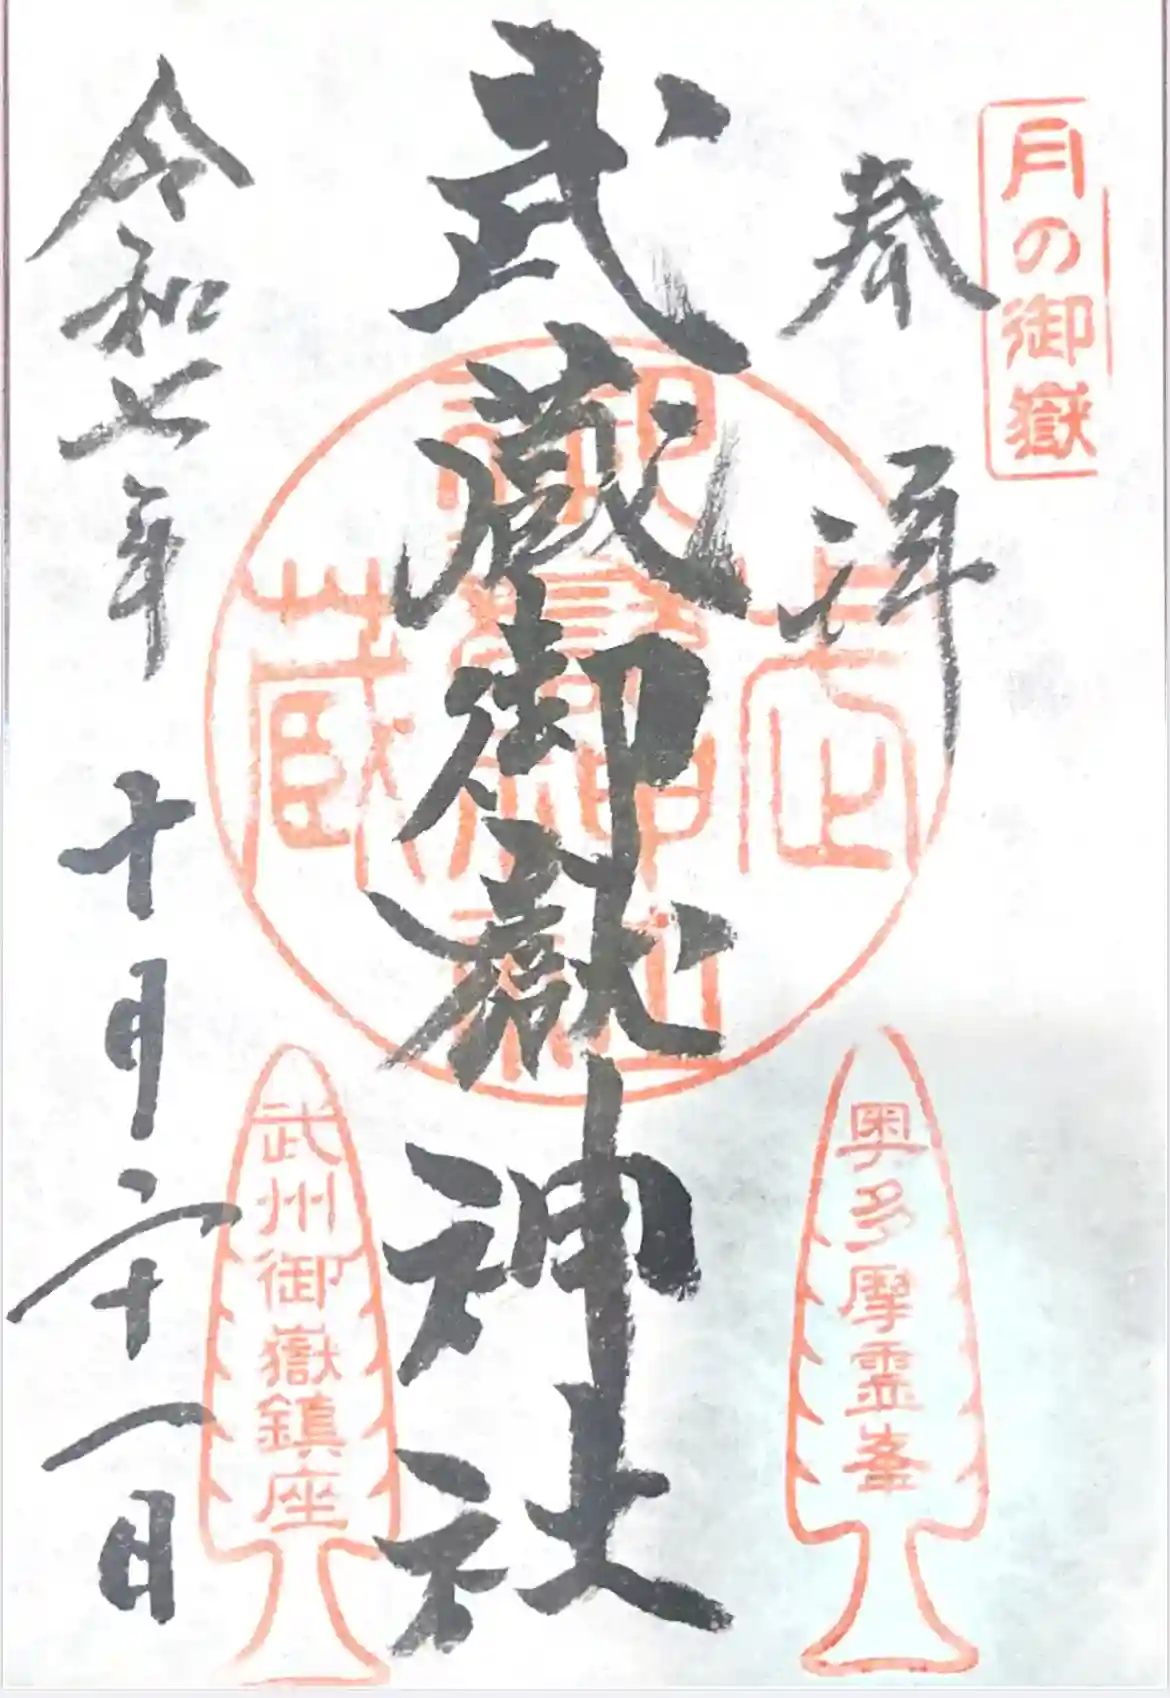 月の御嶽
奉拝
武蔵御嶽神社
令和七年十月二十一日
奥多摩霊峯
武州御嶽鎮座
武蔵
御嶽神社